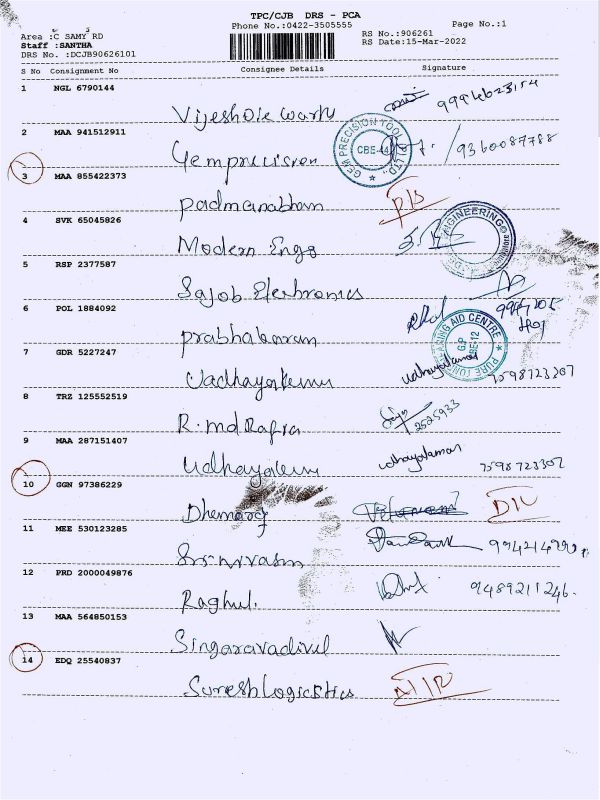 TPC/CJB DRS - PCA
Phone No.:0422-3505555
Page No.:1
Area :C SAMY RD
RS No.:906261
Staff :SANTHA
RS Date:15-Mar-2022
DRS No. :DCJB90626101
S No Consignment No Consignee Details Signature
1 NGL 6790144
Vijesh Die Works
2 MAA 941512911
Gem precision 9360087788
GEM PRECISION TOOLS (P) LTD.,
CBE-44
3 MAA 855422373
padmanabham
4 SVK 65045826
Modern Engg
ENGINEERING
5 RSP 2377587
Sajob Electronics
6 POL 1884092
prabhakaran
HEARING AID CENTRE
G.P
CBE-12
PURE TONE
7 GDR 5227247
Udhayakumar 7598723307
8 TRZ 125552519
R. md Rafia 2525933
9 MAA 287151407
Udhayakumar 7598723307
10 GGN 97386229
Dhemarg
11 MEE 530123285
Srinivasan
12 PRD 2000049876
Raghul. 9489211246.
13 MAA 564850153
Singaravadivel
14 EDQ 25540837
Suresh Logicstics